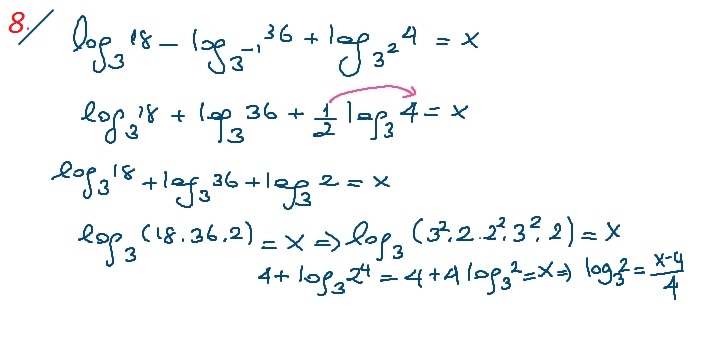 8./ log₃18 − log₃₋₁36 + log₃²4 = x
log₃18 + log₃36 + 1/2 log₃4 = x
log₃18 + log₃36 + log₃2 = x
log₃(18.36.2) = x ⇒ log₃(3².2.2².3².2) = x
4 + log₃2⁴ = 4 + 4 log₃2 = x ⇒ log₃2 = (x-4)/4